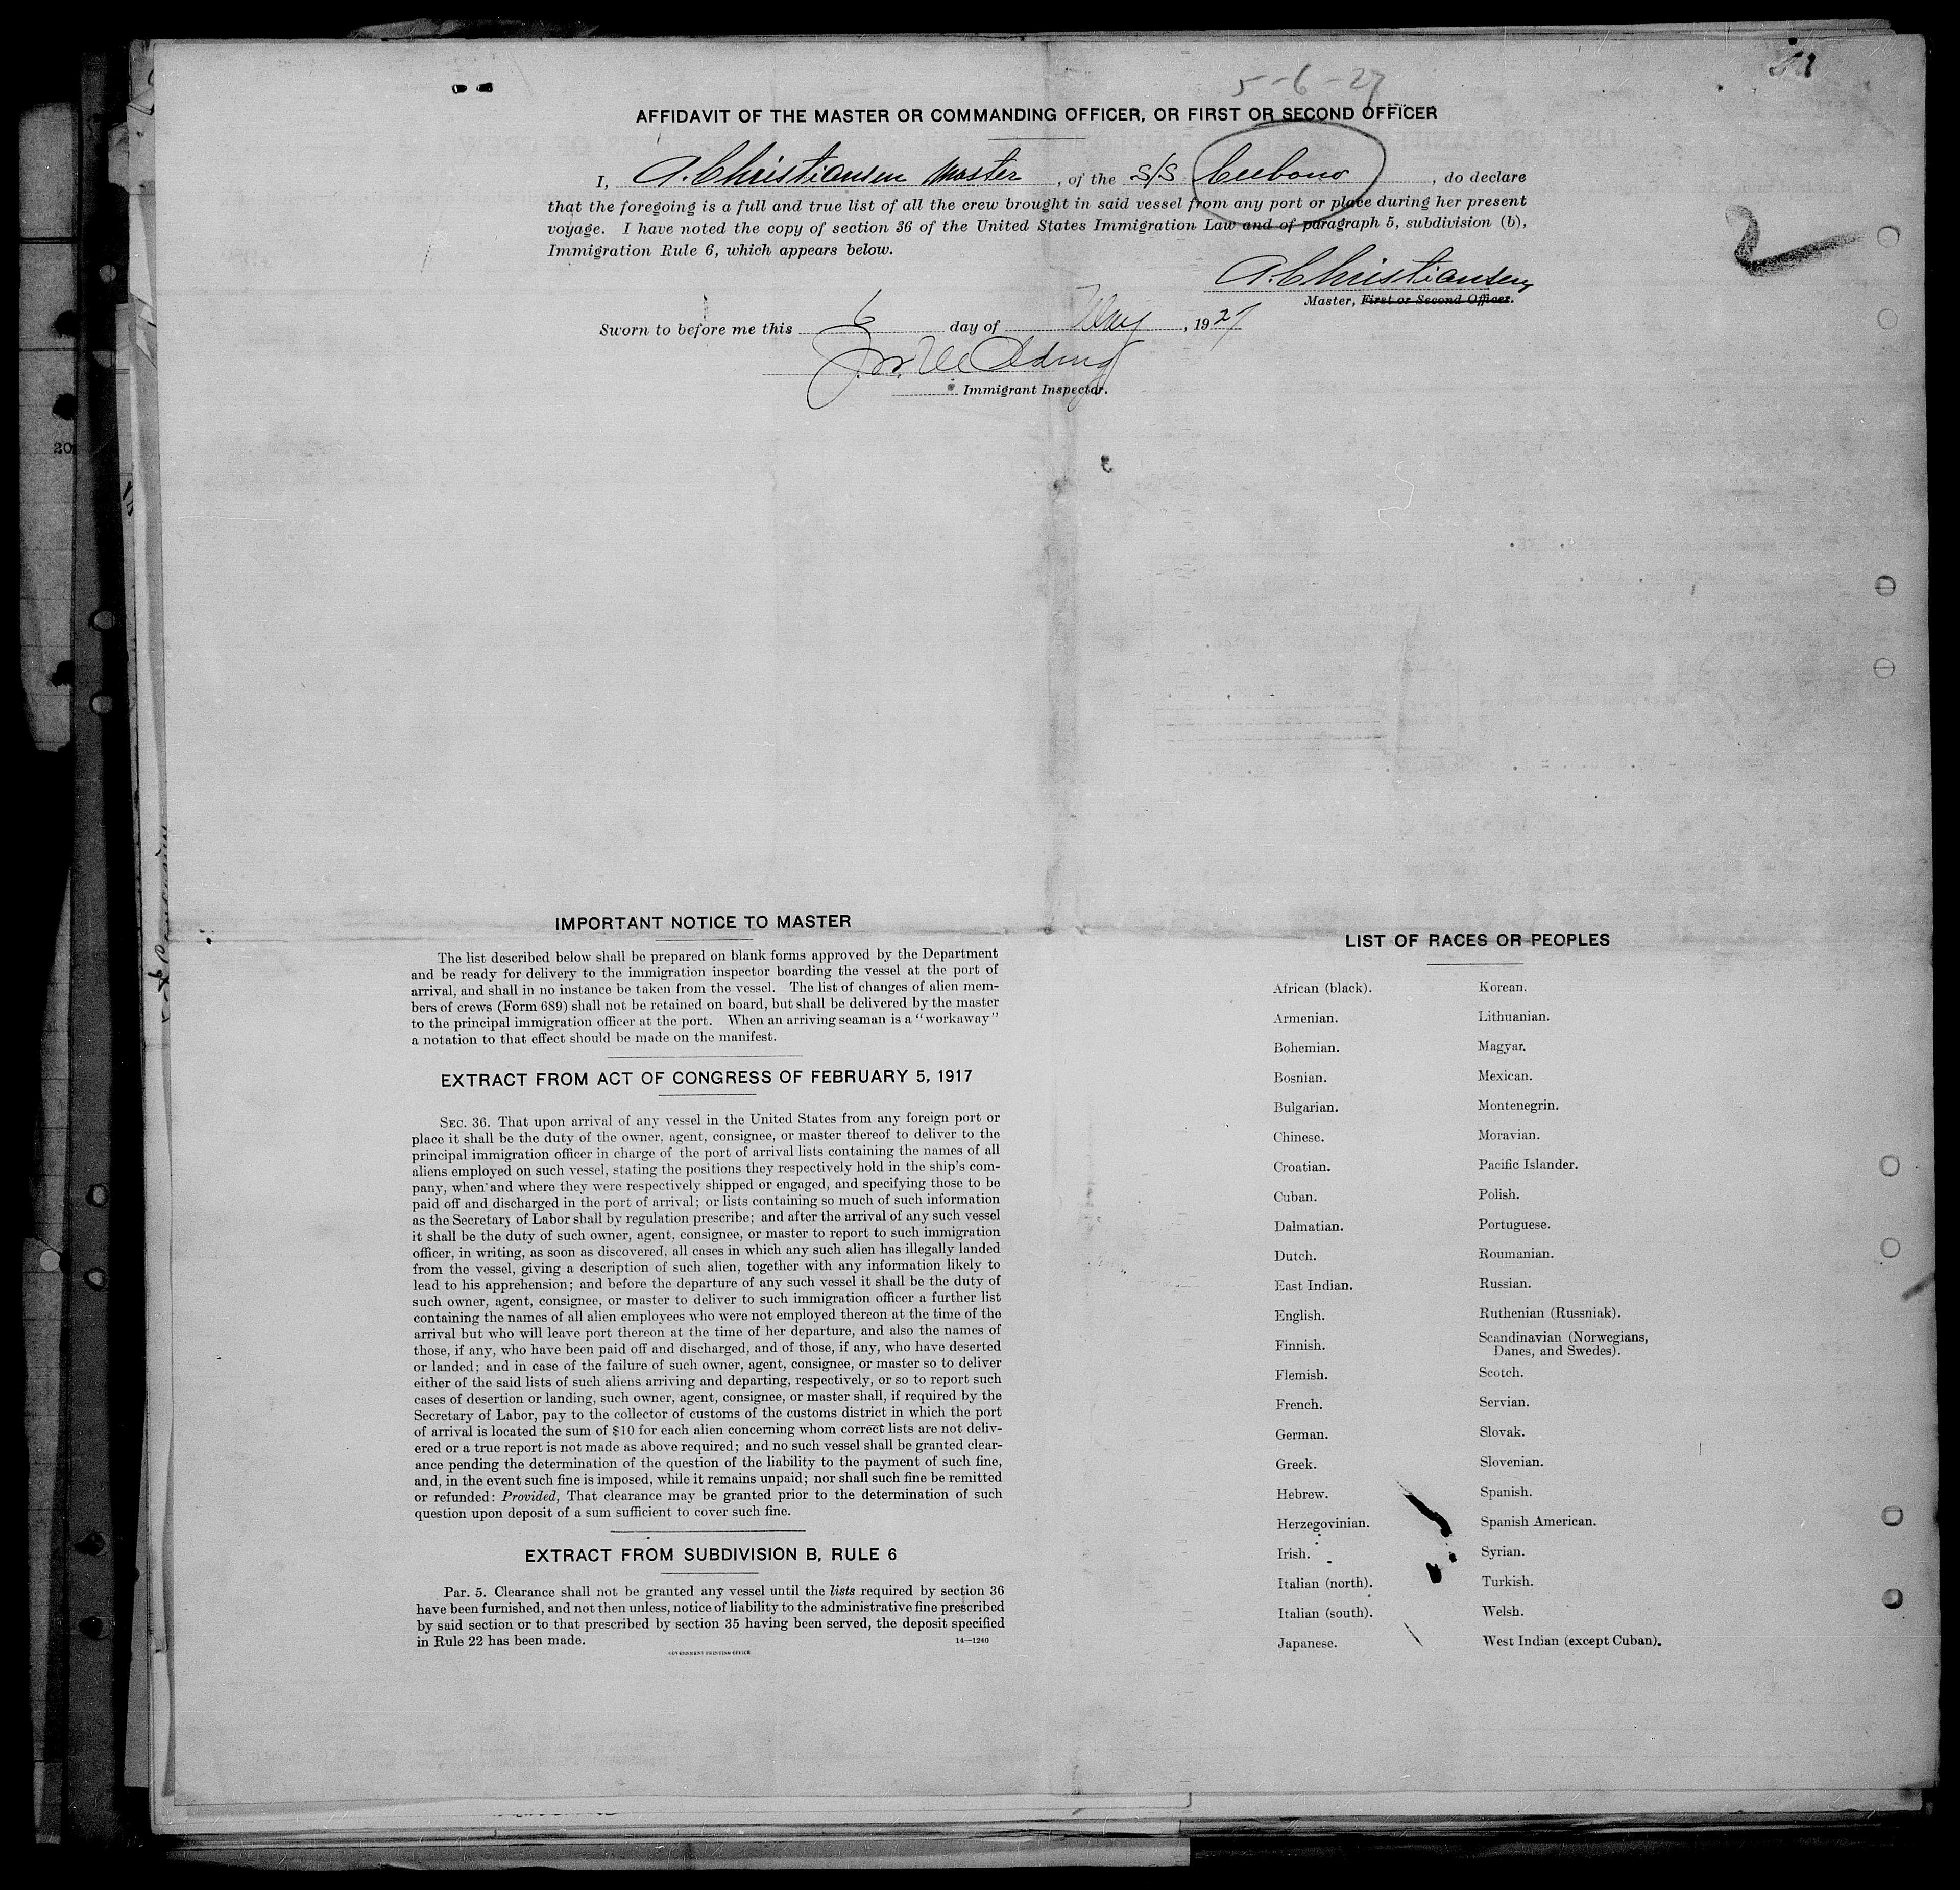 5-6-27
AFFIDAVIT OF THE MASTER OR COMMANDING OFFICER, OR FIRST OR SECOND OFFICER
I, A. Christiansen Master, of the S/S Cubano, do declare
that the foregoing is a full and true list of all the crew brought in said vessel from any port or place during her present
voyage. I have noted the copy of section 36 of the United States Immigration Law and of paragraph 5, subdivision (b),
Immigration Rule 6, which appears below.
2
A. Christiansen
Master, First or Second Officer.
Sworn to before me this 6 day of May, 1927
Immigrant Inspector.
20
IMPORTANT NOTICE TO MASTER
The list described below shall be prepared on blank forms approved by the Department
and be ready for delivery to the immigration inspector boarding the vessel at the port of
arrival, and shall in no instance be taken from the vessel. The list of changes of alien mem-
bers of crews (Form 689) shall not be retained on board, but shall be delivered by the master
to the principal immigration officer at the port. When an arriving seaman is a "workaway"
a notation to that effect should be made on the manifest.
EXTRACT FROM ACT OF CONGRESS OF FEBRUARY 5, 1917
SEC. 36. That upon arrival of any vessel in the United States from any foreign port or
place it shall be the duty of the owner, agent, consignee, or master thereof to deliver to the
principal immigration officer in charge of the port of arrival lists containing the names of all
aliens employed on such vessel, stating the positions they respectively hold in the ship's com-
pany, when and where they were respectively shipped or engaged, and specifying those to be
paid off and discharged in the port of arrival; or lists containing so much of such information
as the Secretary of Labor shall by regulation prescribe; and after the arrival of any such vessel
it shall be the duty of such owner, agent, consignee, or master to report to such immigration
officer, in writing, as soon as discovered, all cases in which any such alien has illegally landed
from the vessel, giving a description of such alien, together with any information likely to
lead to his apprehension; and before the departure of any such vessel it shall be the duty of
such owner, agent, consignee, or master to deliver to such immigration officer a further list
containing the names of all alien employees who were not employed thereon at the time of the
arrival but who will leave port thereon at the time of her departure, and also the names of
those, if any, who have been paid off and discharged, and of those, if any, who have deserted
or landed; and in case of the failure of such owner, agent, consignee, or master so to deliver
either of the said lists of such aliens arriving and departing, respectively, or so to report such
cases of desertion or landing, such owner, agent, consignee, or master shall, if required by the
Secretary of Labor, pay to the collector of customs of the customs district in which the port
of arrival is located the sum of $10 for each alien concerning whom correct lists are not deliv-
ered or a true report is not made as above required; and no such vessel shall be granted clear-
ance pending the determination of the question of the liability to the payment of such fine,
and, in the event such fine is imposed, while it remains unpaid; nor shall such fine be remitted
or refunded: Provided, That clearance may be granted prior to the determination of such
question upon deposit of a sum sufficient to cover such fine.
EXTRACT FROM SUBDIVISION B, RULE 6
Par. 5. Clearance shall not be granted any vessel until the lists required by section 36
have been furnished, and not then unless, notice of liability to the administrative fine prescribed
by said section or to that prescribed by section 35 having been served, the deposit specified
in Rule 22 has been made.
14—1240
GOVERNMENT PRINTING OFFICE
LIST OF RACES OR PEOPLES
African (black).
Armenian.
Bohemian.
Bosnian.
Bulgarian.
Chinese.
Croatian.
Cuban.
Dalmatian.
Dutch.
East Indian.
English.
Finnish.
Flemish.
French.
German.
Greek.
Hebrew.
Herzegovinian.
Irish.
Italian (north).
Italian (south).
Japanese.
Korean.
Lithuanian.
Magyar.
Mexican.
Montenegrin.
Moravian.
Pacific Islander.
Polish.
Portuguese.
Roumanian.
Russian.
Ruthenian (Russniak).
Scandinavian (Norwegians,
Danes, and Swedes).
Scotch.
Servian.
Slovak.
Slovenian.
Spanish.
Spanish American.
Syrian.
Turkish.
Welsh.
West Indian (except Cuban).